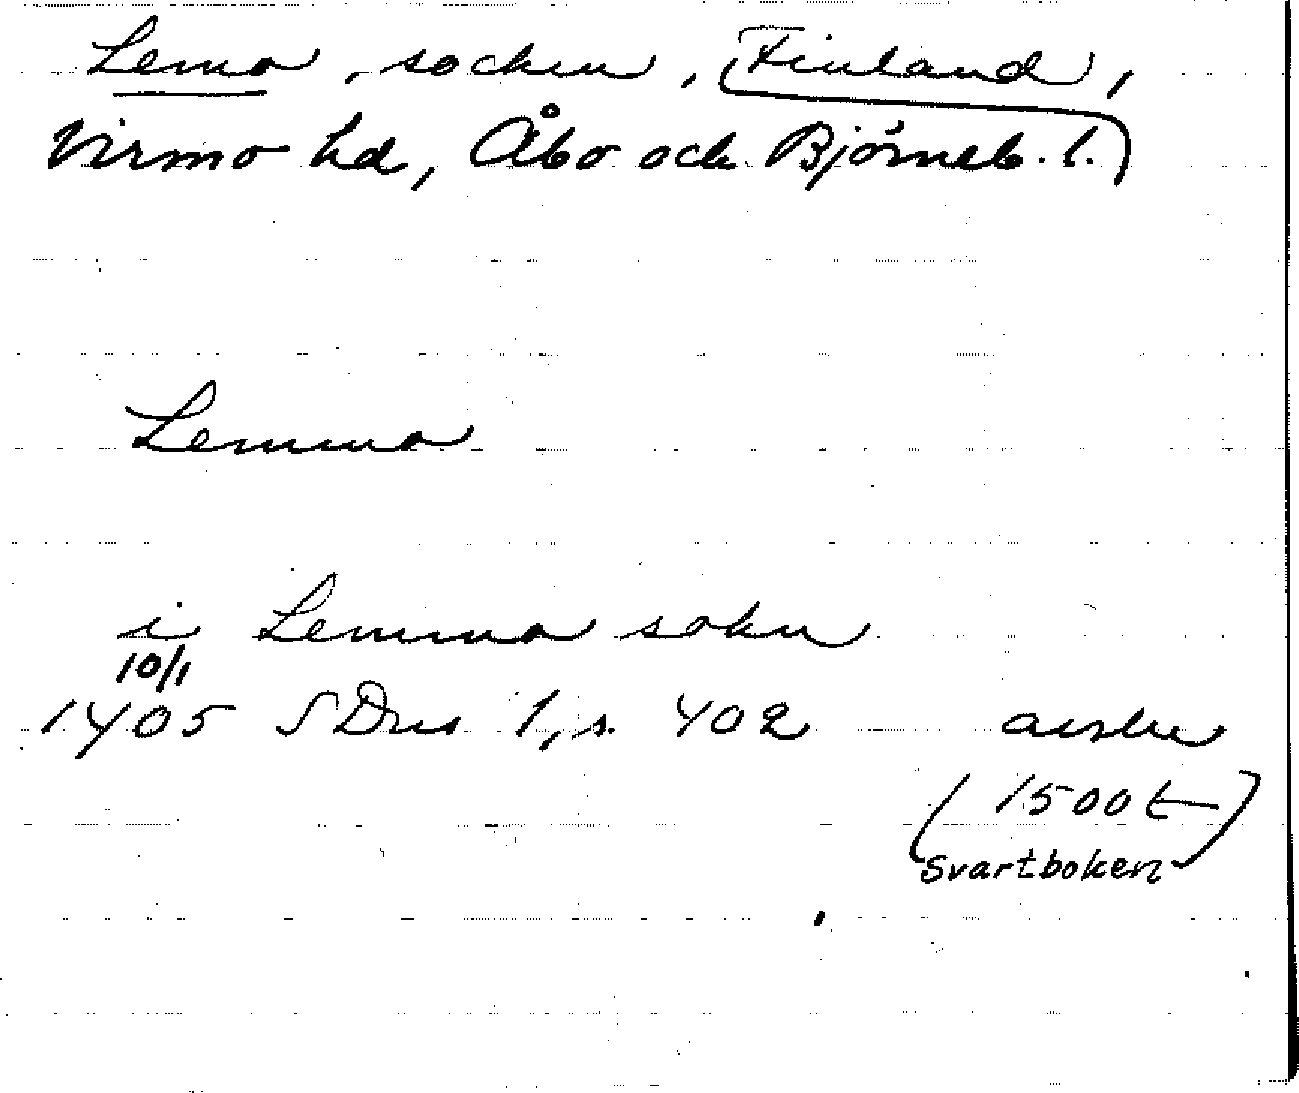 Lemo, socken, (Finland,
Virmo hd, Åbo och Björneb. l.)
Lemmo
i Lemmo sokn
10/1
1405 SDns 1, s. 402 avskr
(1500t
Svartboken)